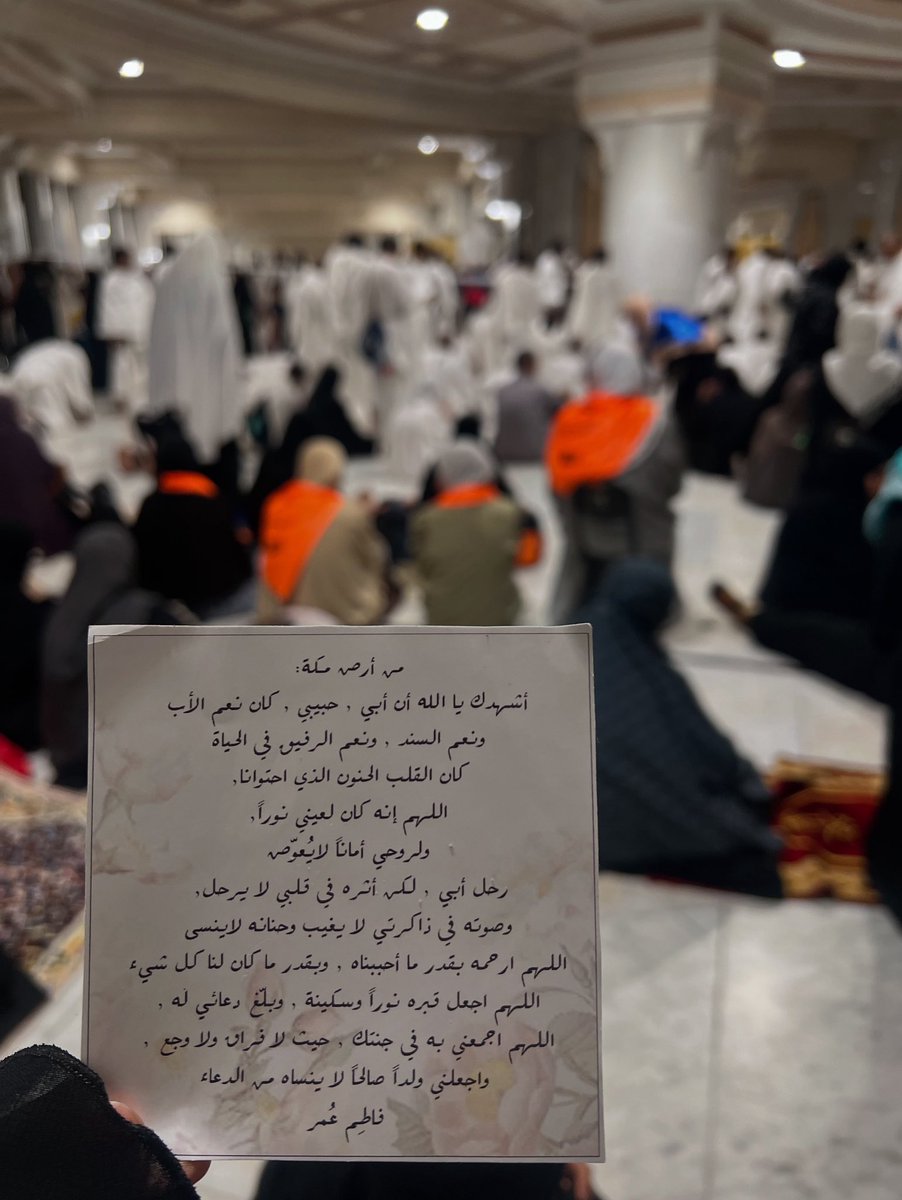 من أرض مكة:
أشهدك يا الله أن أبي , حبيبي , كان نعم الأب
ونعم السند , ونعم الرفيق في الحياة
كان القلب الحنون الذي احتوانا,
اللهم إنه كان لعيني نوراً,
ولروحي أماناً لايُعوّض
رحل أبي , لكن أثره في قلبي لا يرحل,
وصوته في ذاكرتي لا يغيب وحنانه لاينسى
اللهم ارحمه بقدر ما أحببناه , وبقدر ما كان لنا كل شيء
اللهم اجعل قبره نوراً وسكينة , وبلّغ دعائي له ,
اللهم اجمعني به في جنتك , حيث لا فراق ولا وجع ,
واجعلني ولداً صالحاً لا ينساه من الدعاء
فاطِم عُمر